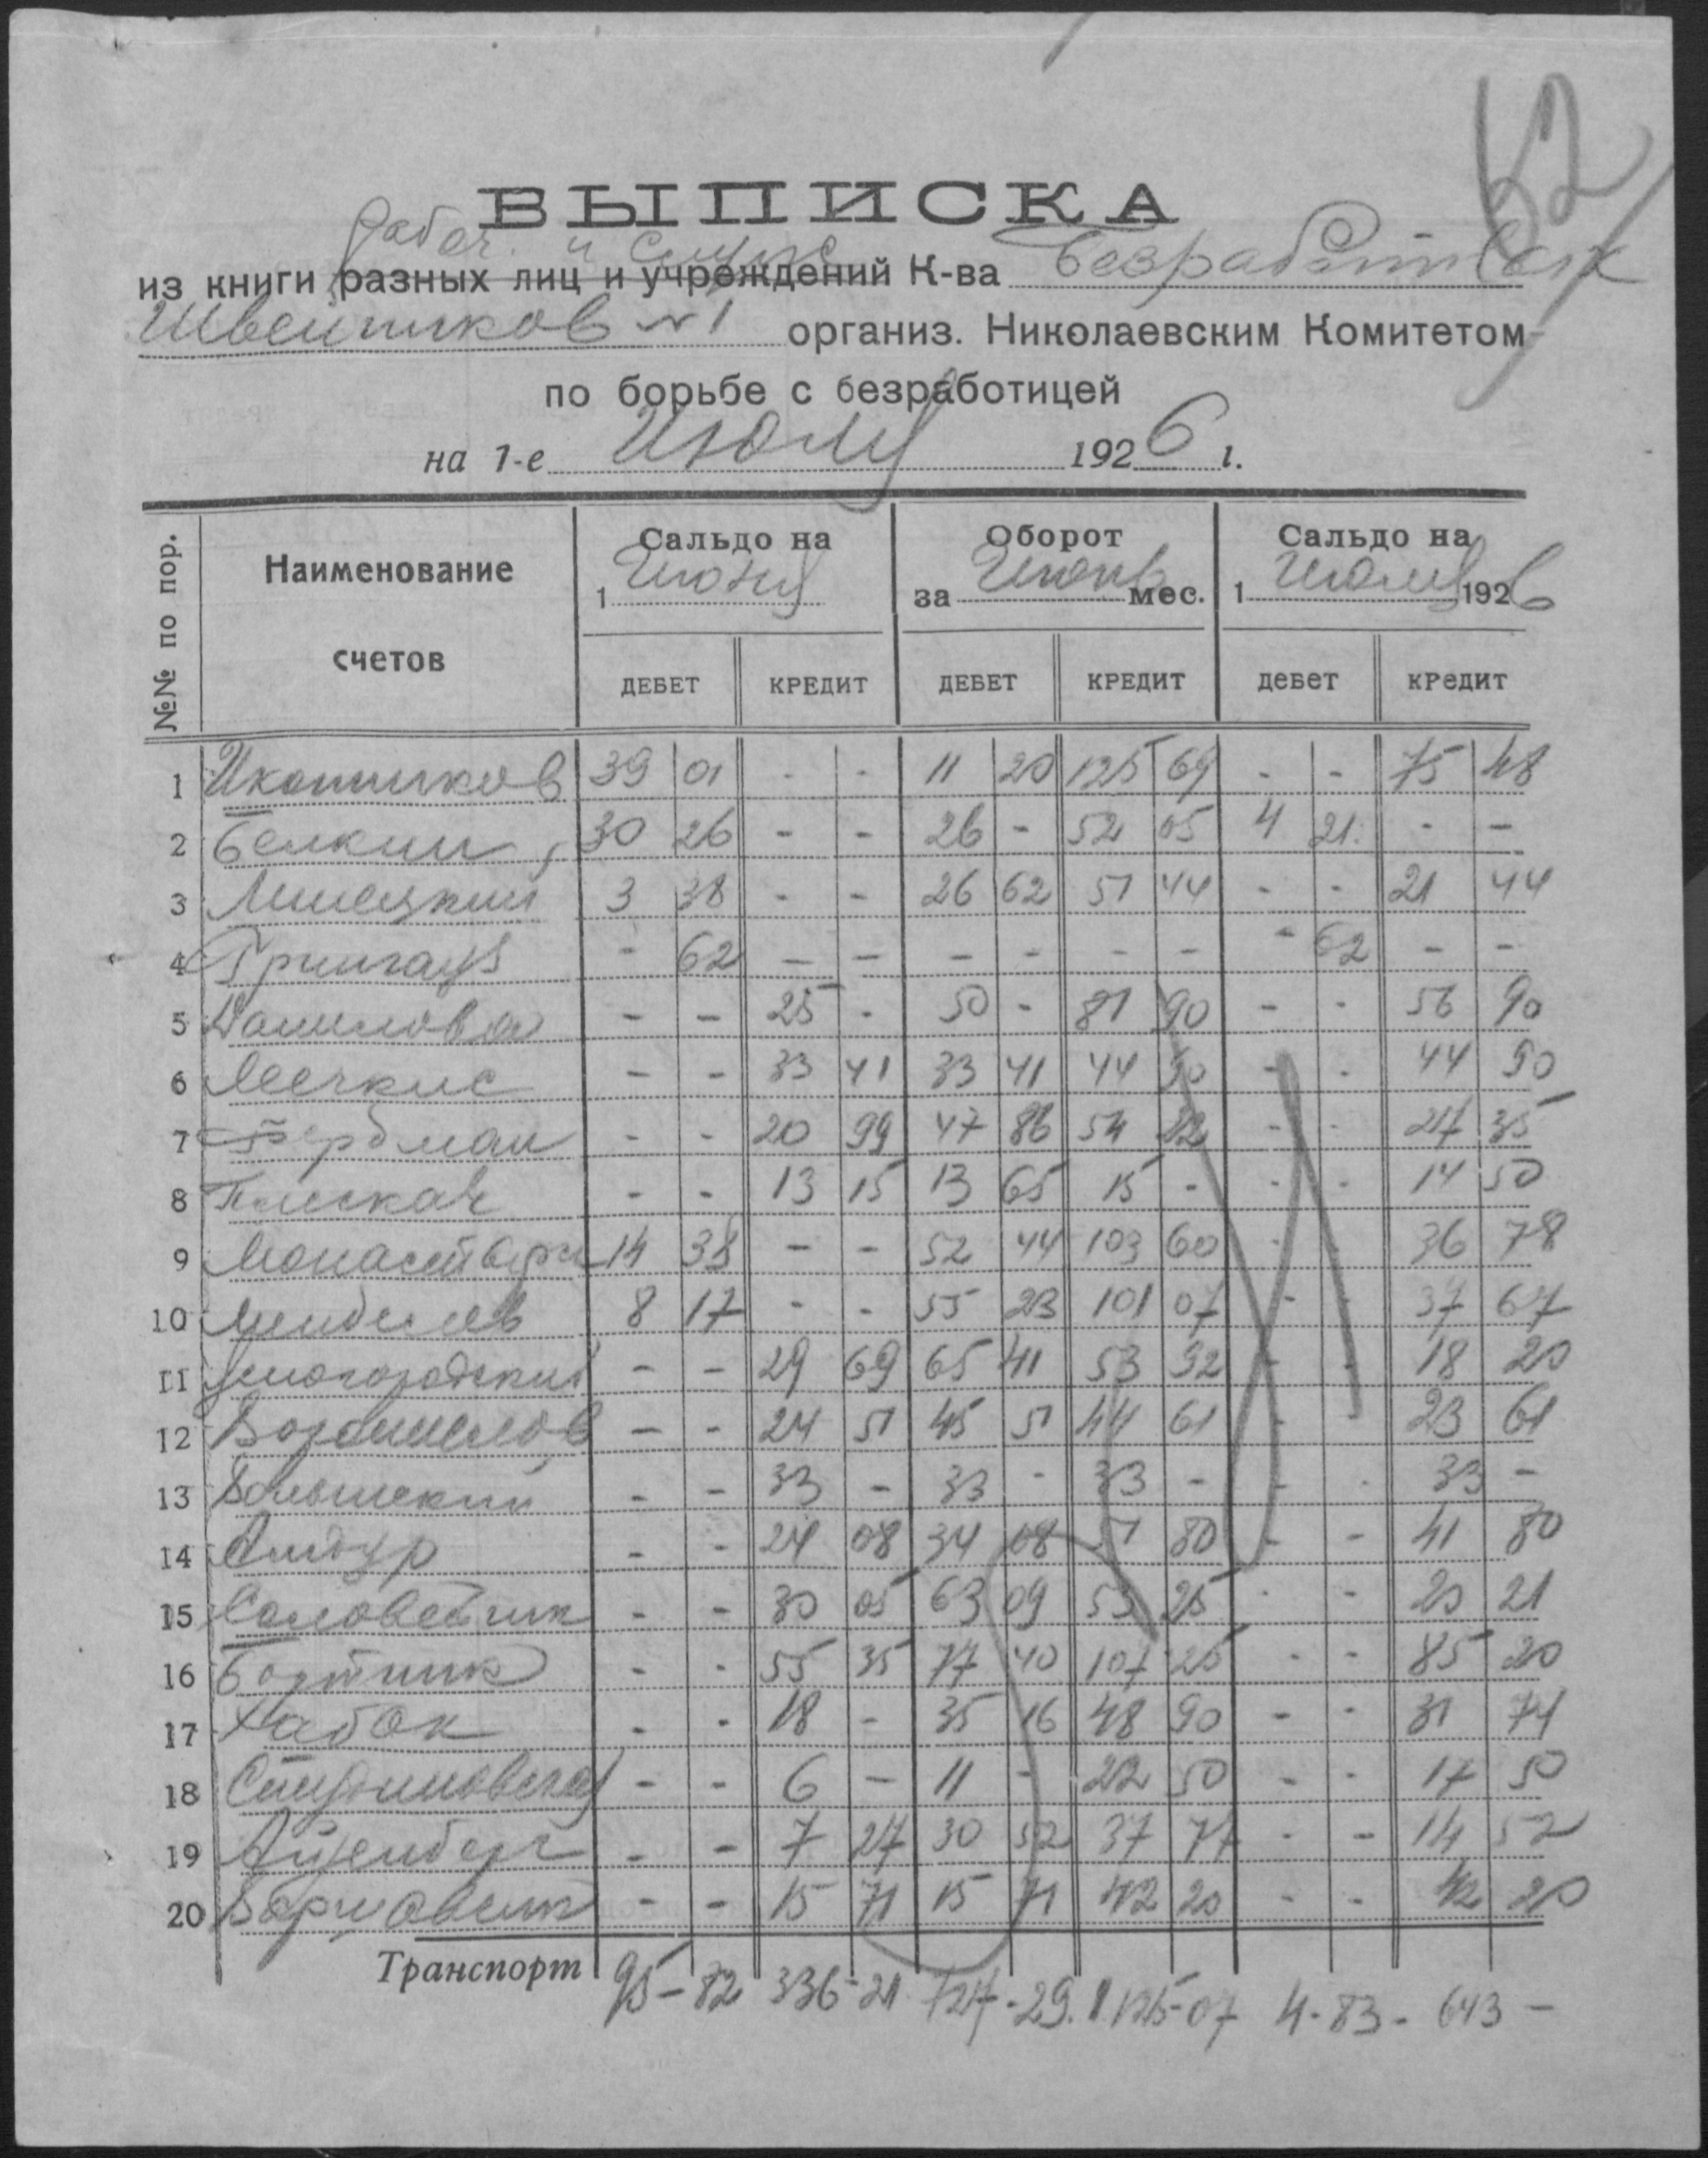 52
ВЫПИСКА
рабоч. и служ.
из книги разных лиц и учреждений К-ва безработных
Швейников №1 организ. Николаевским Комитетом
по борьбе с безработицей
на 1-е Июля 1926 г.
№№ по пор. Наименование счетов Сальдо на 1 Июня Оборот за Июнь мес. Сальдо на 1 Июля 1926
ДЕБЕТ КРЕДИТ ДЕБЕТ КРЕДИТ ДЕБЕТ КРЕДИТ
1 Иконников 39 01 - - 11 20 125 69 - - 75 48
2 Белкин 30 26 - - 26 - 52 05 4 21 - -
3 38 - - 26 62 51 44 - - 21 44
4 Грингауз - 62 - - - - - - - 62 - -
5 Данилова - - 25 - 50 - 81 90 - - 56 90
6 - - 33 41 33 41 44 90 - - 44 90
7 Гербман - - 20 99 47 86 54 22 - - 27 35
8 - - 13 15 13 65 15 - - - 14 50
9 14 38 - - 52 44 103 60 - - 36 78
10 8 17 - - 55 23 101 07 - - 37 67
11 - - 29 69 65 41 53 92 - - 18 20
12 - - 24 51 45 51 44 61 - - 23 61
13 - - 33 - 33 - 33 - - - 33 -
14 - - 24 08 34 08 51 80 - - 41 80
15 Соловейчик - - 30 05 63 09 53 25 - - 20 21
16 Бортник - - 55 35 77 40 107 25 - - 85 20
17 Хабок - - 18 - 35 16 48 90 - - 31 74
18 - - 6 - 11 - 22 50 - - 17 50
19 Айзенберг - - 7 27 30 52 37 77 - - 14 52
20 - - 15 71 15 71 42 20 - - 42 20
Транспорт 95-82 336-21 727-29. 1125-07 4-83- 643-